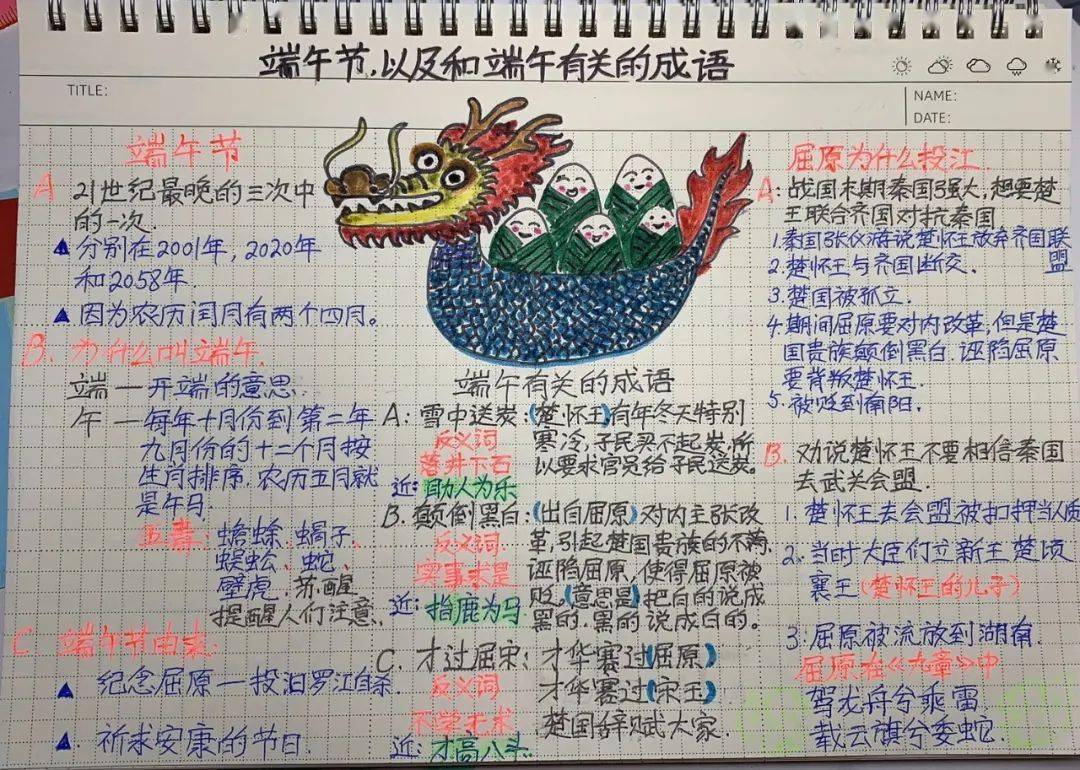 端午节,以及和端午有关的成语
TITLE:
NAME:
DATE:
端午节
A 21世纪最晚的三次中
的一次.
▲ 分别在2001年, 2020年
和2058年.
▲ 因为农历闰月有两个四月。
B. 为什么叫端午.
端一开端的意思.
午一每年十月份到第二年
九月份的十二个月按
生肖排序.农历五月就
是午马.
五毒: 蟾蜍、蝎子、
蜈蚣、蛇、
壁虎.苏醒
提醒人们注意.
C 端午节由来:
▲ 纪念屈原一投汨罗江自杀.
▲ 祈求安康的节日.
端午有关的成语
A: 雪中送炭:(楚怀王)有年冬天特别
反义词 寒冷,子民买不起炭,所
落井下石 以要求官员给子民送炭。
近: 助人为乐
B. 颠倒黑白:(出自屈原)对内主张改
反义词 革,引起楚国贵族的不满,
实事求是 诬陷屈原,使得屈原被
近: 指鹿为马 贬。(意思是)把白的说成
黑的.黑的说成白的。
C. 才过屈宋: 才华赛过(屈原)
反义词 才华赛过(宋王)
不学无术 楚国辞赋大家.
近: 才高八斗.
屈原为什么投江.
A: 战国末期秦国强大,想要楚
王联合齐国对抗秦国
1.秦国张仪游说楚怀王放弃齐国联
盟
2.楚怀王与齐国断交.
3.楚国被孤立.
4.期间屈原要对内改革,但是楚
国贵族颠倒黑白.诬陷屈原
要背叛楚怀王.
5.被贬到南阳.
B. 劝说楚怀王不要相信秦国
去武关会盟.
1. 楚怀王去会盟被扣押当人质
2. 当时大臣们立新王楚顷
襄王(楚怀王的儿子)
3.屈原被流放到湖南.
屈原在《九章》中
驾龙舟兮乘雷
载云旗兮委蛇.